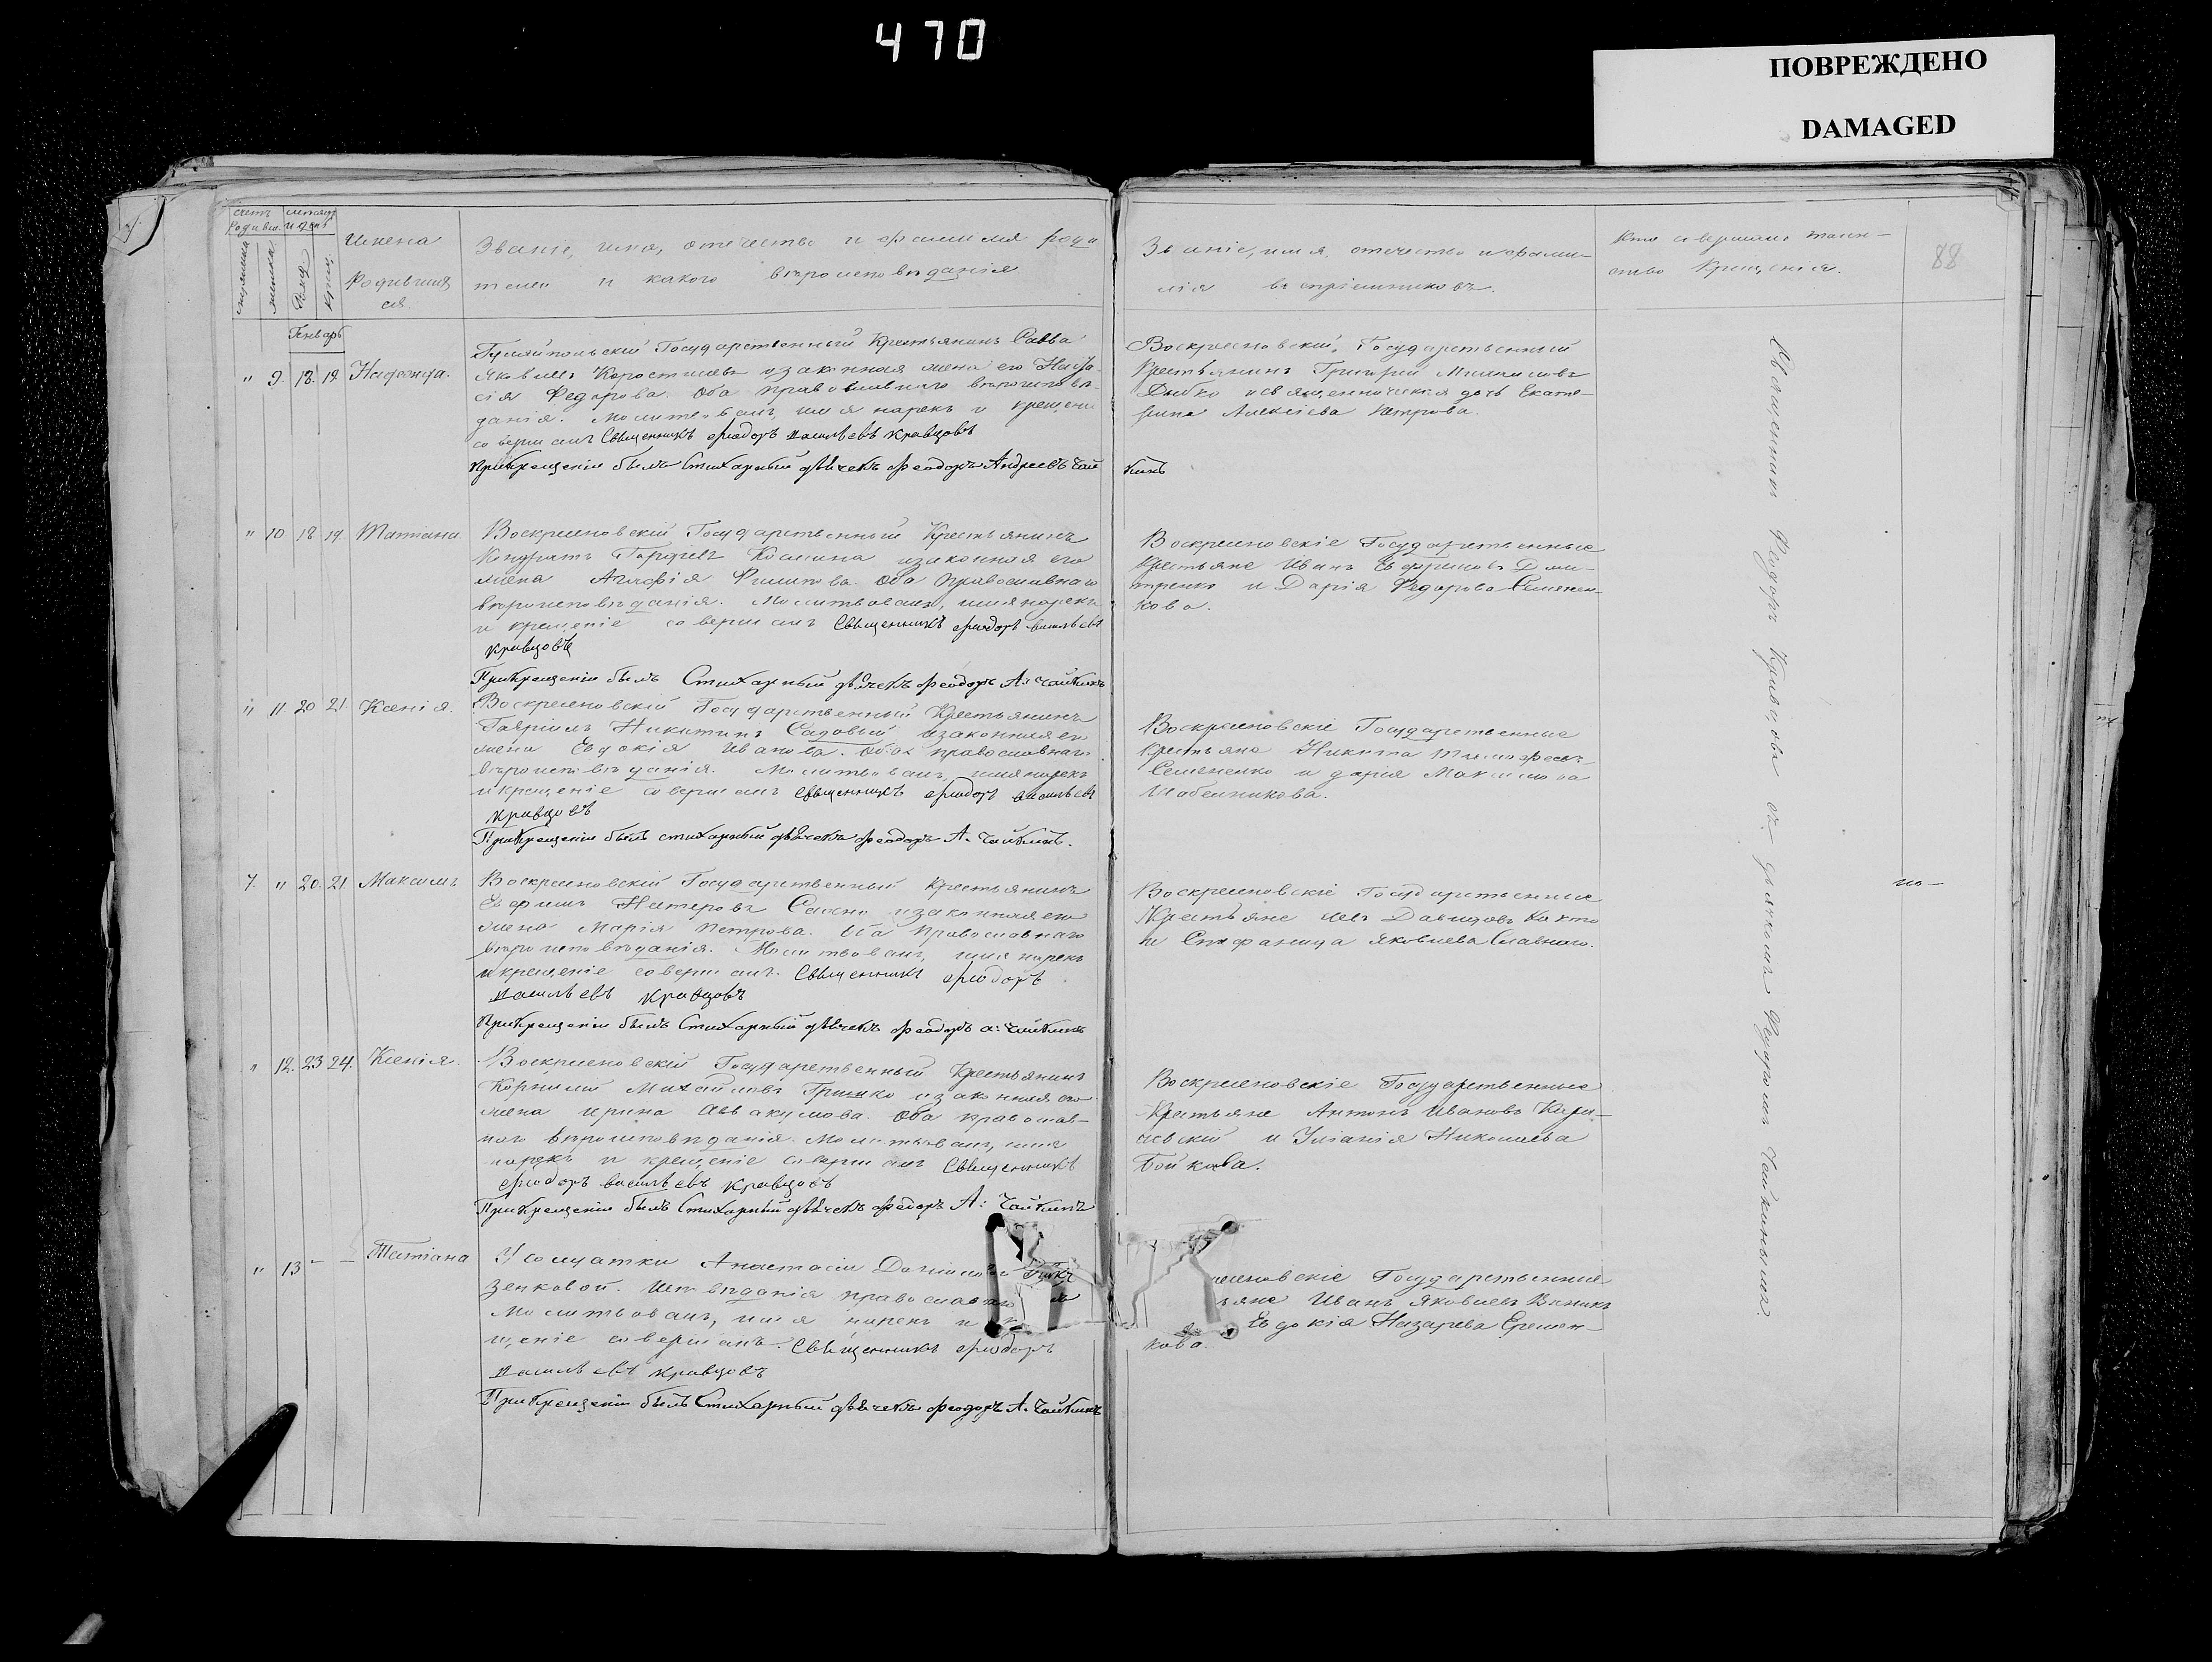 470
ПОВРЕЖДЕНО
DAMAGED
счетъ родивш.
мѣсяцъ и день
мужеска
женска
рожд.
крещ.
Имена
родившихся
Званіе, имя, отечество и фамилія роди
телей и какого вѣроисповѣданія
Званіе, имя, отечество и фами-
лія воспріемниковъ.
Кто совершалъ таин-
ство Крещенія.
88
Генварь
" 9. 18. 19. Надежда.
Гуляйпольскій Государственный Крестьянинъ Савва
Яковлевъ и законная жена его
Федорова. Оба православнаго вѣроисповѣ-
данія. Молитвовалъ, имя нарекъ и крещені
совершалъ Священникъ Ѳеодоръ Васильевъ Кравцовъ
При крещеніи былъ Стихарный дьячекъ Ѳеодоръ Андреевъ Чай
Воскресеновскій, Государственный
Крестьянинъ Григорій
и священническая дочь Екате-
рина Алексіева Петрова.
кинъ
" 10 18 19. Татіана
Воскресеновскій Государственный Крестьянинъ
Кондратъ и законная его
жена Агафія Филипова. Оба православнаго
вѣроисповѣданія. Молитвовалъ, имя нарекъ
и крещеніе совершалъ Священникъ Ѳеодоръ Васильевъ
Кравцовъ
При крещеніи былъ Стихарный дьячекъ Ѳеодоръ А: Чайкинъ
Воскресеновскіе Государственные
Крестьяне Иванъ
и Дарія Федорова Семенен-
кова.
" 11 20 21 Ксенія.
Воскресеновскій Государственный Крестьянинъ
Гавріилъ Никитинъ Садовый и законная его
жена Евдокія Иванова. Оба православнаго
вѣроисповѣданія. Молитвовалъ, имя нарекъ
и крещеніе совершалъ Священникъ Ѳеодоръ Васильевъ
Кравцовъ
При крещеніи былъ стихарный дьячекъ Ѳеодоръ А. Чайкинъ.
Воскресеновскіе Государственные
Крестьяне Никита Тимофеевъ
Семененко и Дарія Максимова
Шабельникова.
7. " 20. 21. Максимъ
Воскресеновскій Государственный Крестьянинъ
Ефимъ и законная его
жена Марія Петрова. Оба православнаго
вѣроисповѣданія. Молитвовалъ, имя нарекъ
и крещеніе совершалъ. Священникъ Ѳеодоръ
Васильевъ Кравцовъ
При крещеніи былъ Стихарный дьячекъ Ѳеодоръ А: Чайкинъ
Воскресеновскіе Государственные
Крестьяне Левъ Давидовъ
и Стефанида Яковлева
" 12. 23 24. Ксенія.
Воскресеновскій Государственный Крестьянинъ
Корнилій Михайловъ Гришко и законная его
жена Ирина Аввакумова. Оба православ-
наго вѣроисповѣданія. Молитвовалъ, имя
нарекъ и крещеніе совершалъ Священникъ
Ѳеодоръ Васильевъ Кравцовъ
При крещеніи былъ Стихарный дьячекъ Ѳеодоръ А: Чайкинъ
Воскресеновскіе Государственные
Крестьяне Антонъ Ивановъ
и Уліанія Николаева
Бойкова.
" 13 - - Татіана
У солдатки Анастасіи
зенковой. Исповѣданія православнаго
Молитвовалъ, имя нарекъ и
щеніе совершалъ. Священникъ Ѳеодоръ
Васильевъ Кравцовъ
При крещеніи былъ Стихарный дьячекъ Ѳеодоръ А. Чайкинъ
сеновскіе Государственные
яне Иванъ Яковлевъ
Евдокія Назарева Еремен-
кова.
Священникъ Федоръ Кравцовъ съ дьячкомъ Федоромъ Чайкинымъ.
по-